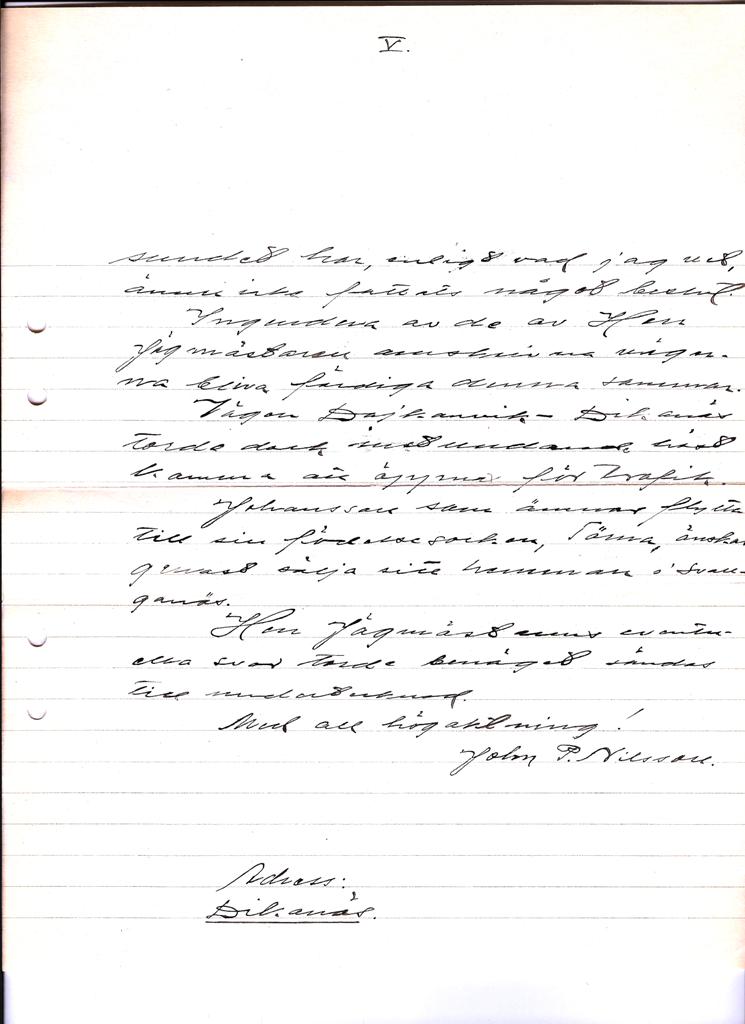 V.
sundet har, enligt vad jag vet,
ännu icke fattats något beslut.
Ingendera av de av Herr
Jägmästaren omskrivna vägar-
na bliva färdiga denna sommar.
Vägen Dajkanvik – Dikanäs
torde dock instundande höst
komma att öppnas för trafik.
Johansson som ämnar flytta
till sin födelsesocken, Tärna, önskar
genast sälja sitt hemman i
ganäs.
Herr Jägmästarens eventu-
ella svar torde benäget sändas
till undertecknad.
Med all högaktning!
John P. Nilsson.
Adress:
Dikanäs.